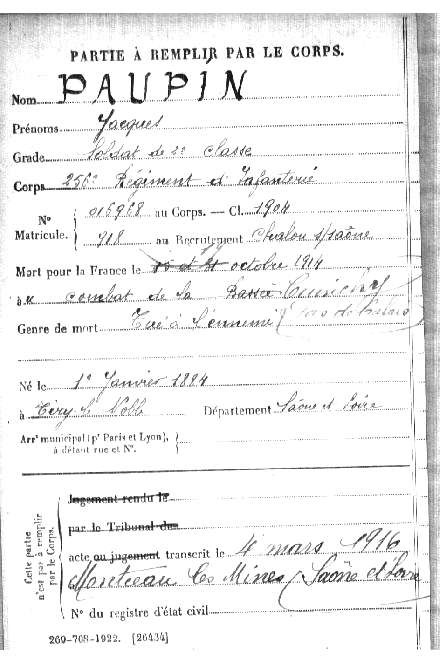 PARTIE À REMPLIR PAR LE CORPS.
Nom PAUPIN
Prénoms Jacques
Grade Soldat de 2e Classe
Corps 256e Régiment d'Infanterie
Nº Matricule. { 016968 au Corps. — Cl. 1904
918 au Recrutement Chalon s/saône
Mort pour la France le octobre 1914
au combat de la Bassée Cuinchy
Genre de mort Tué à l'ennemi (Pas de Calais)
Né le 1er Janvier 1884
à Ciry le Noble Département Saône et Loire
Arrt municipal (pr Paris et Lyon), }
à défaut rue et Nº.
Cette partie n'est pas à remplir par le Corps.
Jugement rendu le
par le Tribunal de
acte ou jugement transcrit le 4 mars 1916
Montceau les Mines (Saône et Loire
Nº du registre d'état civil
269-708-1922. [26434]